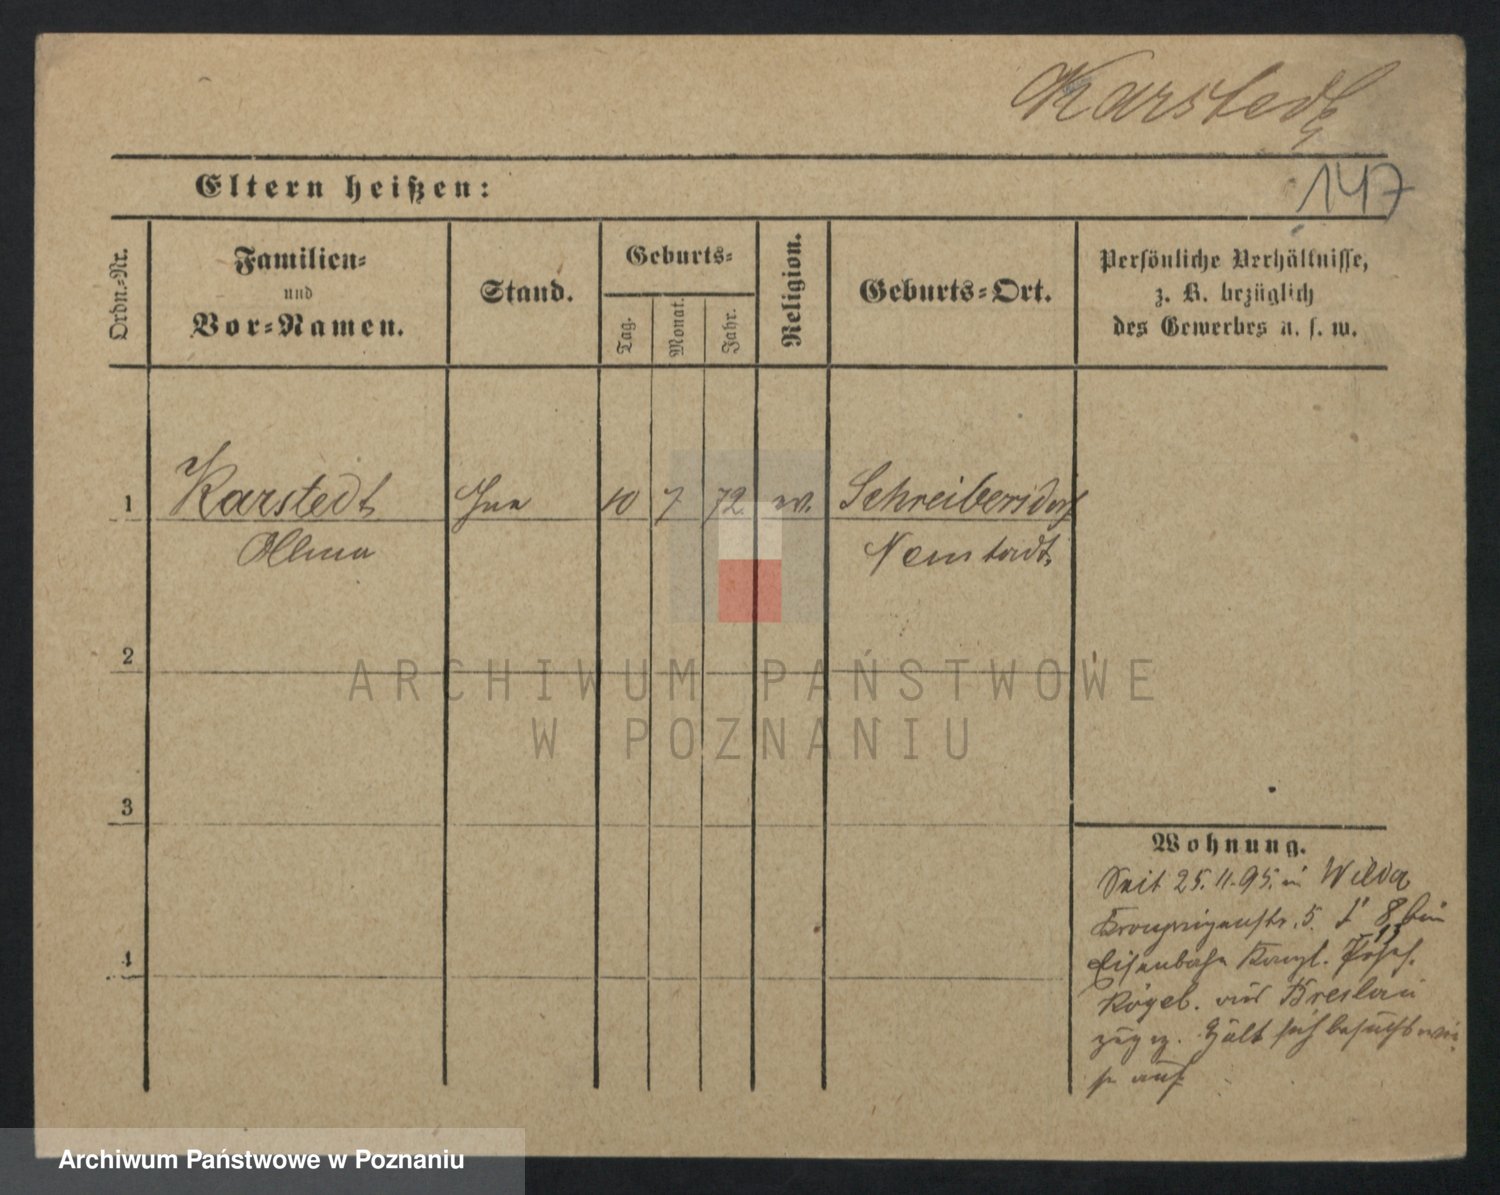 Karstedt
147
Eltern heißen:
Ordn.-Nr.
Familien-
und
Vor-Namen.
Stand.
Geburts-
Tag.
Monat.
Jahr.
Religion.
Geburts-Ort.
Persönliche Verhältnisse,
z. B. bezüglich
des Gewerbes u. s. w.
1 Karstedt 10 7 72. ev. Schreibersdorf
Neustadt
2
3
4
Wohnung.
Seit 25.11.95. in Wilda
Kronprinzenstr. 5. I 8 bei
Eisenbahn Kanzl.
aus Breslau
zugez. Hält sich besuchswei-
se auf
ARCHIWUM PAŃSTWOWE
W POZNANIU
Archiwum Państwowe w Poznaniu